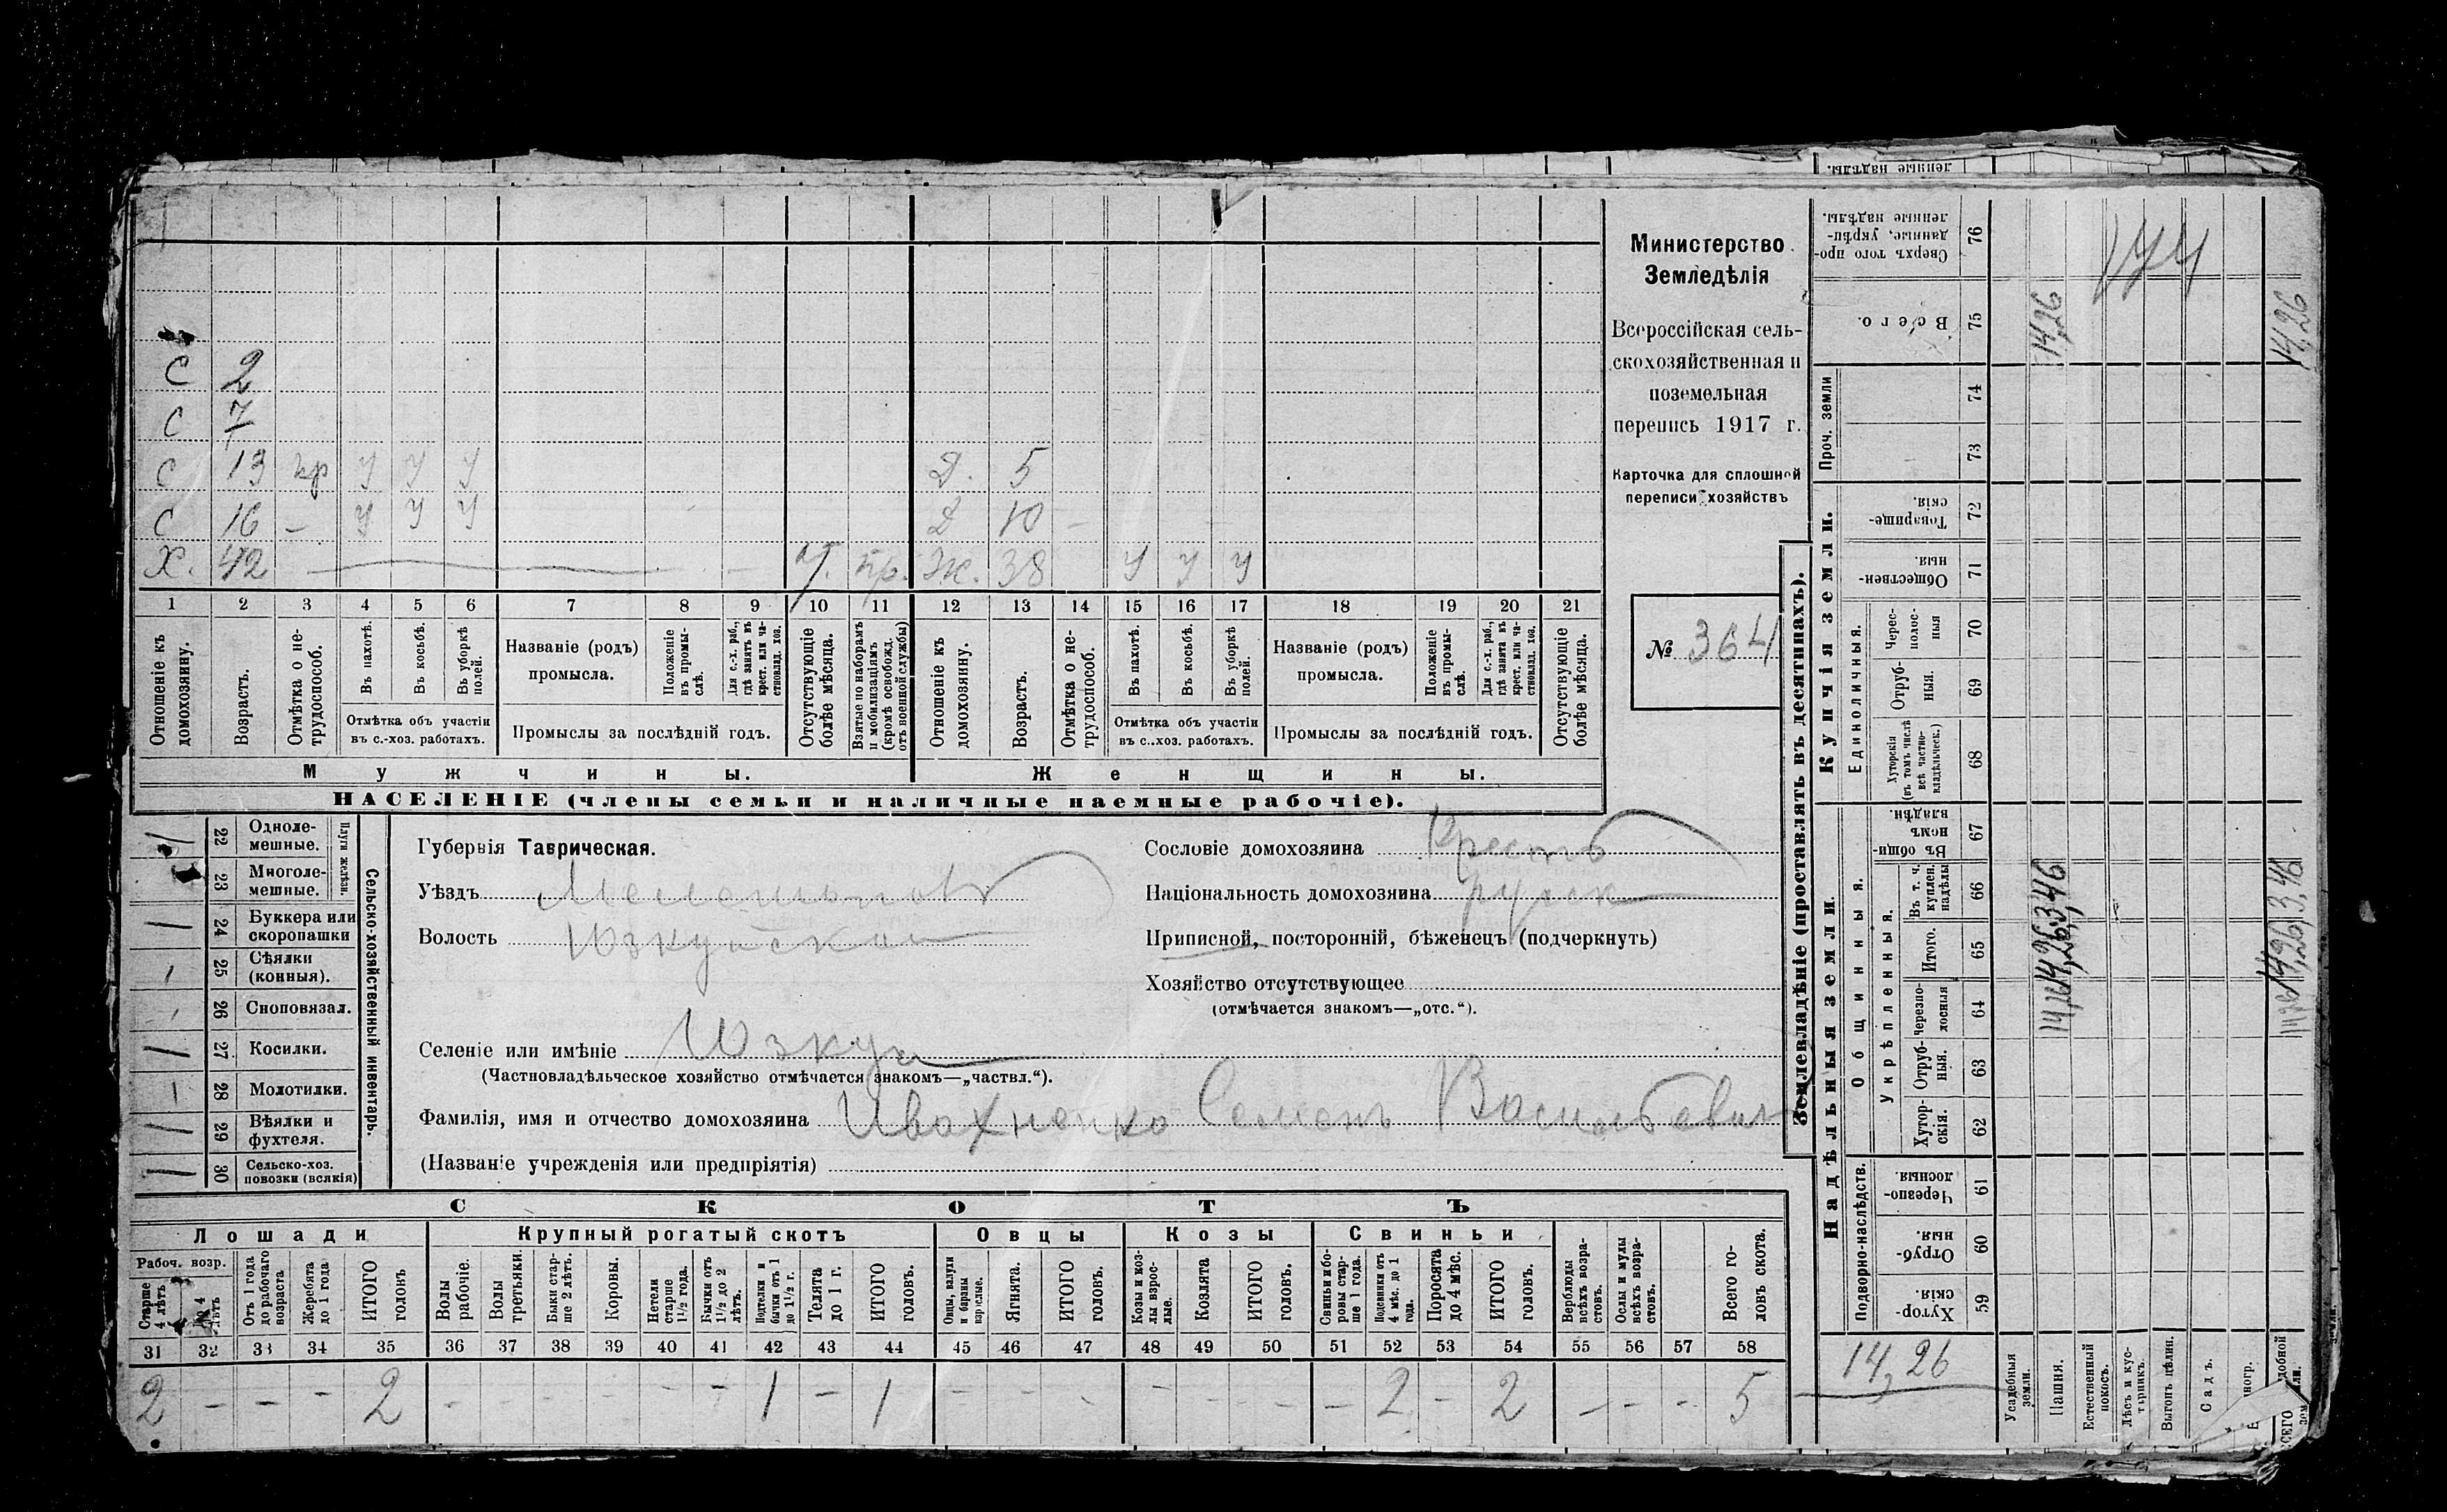 С 2
С 7
С 13 нр У У У Д. 5
С 16 – У У У Д 10 –
Х. 42 Ж. 38 У У У
1 2 3 4 5 6 7 8 9 10 11 12 13 14 15 16 17 18 19 20 21
Отношеніе къ домохозяину.
Возрастъ.
Отмѣтка о не-трудоспособ.
Въ пахотѣ.
Въ косьбѣ.
Въ уборкѣ полей.
Отмѣтка объ участіи
въ с.-хоз. работахъ.
Названіе (родъ)
промысла.
Положеніе въ промы-слѣ.
Для с.-х. раб., гдѣ занятъ въ крест. или ча-стновлад. хоз.
Промыслы за послѣдній годъ.
Отсутствующіе болѣе мѣсяца.
Взятые по наборамъ и мобилизаціямъ (кромѣ освобожд. отъ военной службы)
Отношеніе къ домохозяину.
Возрастъ.
Отмѣтка о не-трудоспособ.
Въ пахотѣ.
Въ косьбѣ.
Въ уборкѣ полей.
Отмѣтка объ участіи
въ с.-хоз. работахъ.
Названіе (родъ)
промысла.
Положеніе въ промы-слѣ.
Для с.-х. раб., гдѣ занята въ крест. или ча-стновлад. хоз.
Промыслы за послѣдній годъ.
Отсутствующіе болѣе мѣсяца.
Мужчины. Женщины.
НАСЕЛЕНІЕ (члены семьи и наличные наемные рабочіе).
Министерство
Земледѣлія
Всероссійская сель-
скохозяйственная и
поземельная
перепись 1917 г.
Карточка для сплошной
переписи хозяйствъ
№ 364
22 Одноле-мешные.
23 Многоле-мешные.
Плуги желѣзн.
24 Буккера или скоропашки
25 Сѣялки (конныя).
26 Сноповязал.
27 Косилки.
28 Молотилки.
29 Вѣялки и фухтеля.
30 Сельско-хоз. повозки (всякія)
Сельско-хозяйственный инвентарь.
Губернія Таврическая.
Уѣздъ Мелитопол
Волость Юзкуйская
Селеніе или имѣніе Юзкуи
(Частновладѣльческое хозяйство отмѣчается знакомъ—„частвл.“).
Фамилія, имя и отчество домохозяина Ивахненко Семенъ Васильевич
(Названіе учрежденія или предпріятія)
Сословіе домохозяина Крестъ
Національность домохозяина русск
Приписной, посторонній, бѣженецъ (подчеркнуть)
Хозяйство отсутствующее
(отмѣчается знакомъ—„отс.“).
СКОТЪ
Лошади Крупный рогатый скотъ Овцы Козы Свиньи
Рабоч. возр.
Старше 4 лѣтъ
До 4 лѣтъ
Отъ 1 года до рабочаго возраста
Жеребята до 1 года
ИТОГО головъ
Волы рабочіе.
Волы третьяки.
Быки стар-ше 2 лѣтъ.
Коровы.
Нетели старше 1½ года.
Бычки отъ 1½ до 2 лѣтъ.
Подтелки и бычки отъ 1 до 1½ г.
Телята до 1 г.
ИТОГО головъ.
Овцы, валухи и бараны взрослые.
Ягнята.
ИТОГО головъ.
Козы и коз-лы взрос-лые.
Козлята
ИТОГО головъ.
Свиньи и бо-ровы стар-ше 1 года.
Подсвинки отъ 4 мѣс. до 1 года.
Поросята до 4 мѣс.
ИТОГО головъ.
Верблюды всѣхъ возра-стовъ.
Ослы и мулы всѣхъ возра-стовъ.
Всего го-ловъ скота.
31 32 33 34 35 36 37 38 39 40 41 42 43 44 45 46 47 48 49 50 51 52 53 54 55 56 57 58
2 – – – 2 – – – – – – 1 – 1 – – – – – – – 2 – 2 – – – 5
Землевладѣніе (проставлять въ десятинахъ).
Надѣльныя земли. Купчія земли. Проч. земли
Подворно-наслѣдств.
Общинныя.
Укрѣпленныя.
Единоличныя.
Хутор-скія. 59
Отруб-ныя. 60
Черезпо-лосныя. 61
Хутор-скія. 62
Отруб-ныя. 63
Черезпо-лосныя 64
Итого. 65
Въ т. ч. куплен. надѣлы 66
Въ общин-номъ владѣн. 67
Хуторскія (въ томъ числѣ всѣ частно-владѣльческ.) 68
Отруб-ныя. 69
Черес-полос-ныя 70
Обществен-ныя 71
Товарище-скія. 72
73
74
Всего. 75
Сверхъ того про-данные, укрѣп-ленные надѣлы. 76
ленные надѣлы.
14,26
Усадебныя земли.
Пашня.
Естественный покосъ.
Лѣсъ и кус-тарникъ.
Выгонъ цѣлин.
Садъ.
14,26 14,26 3,46 14,26
174
14,26 14,26 3,46 14,26